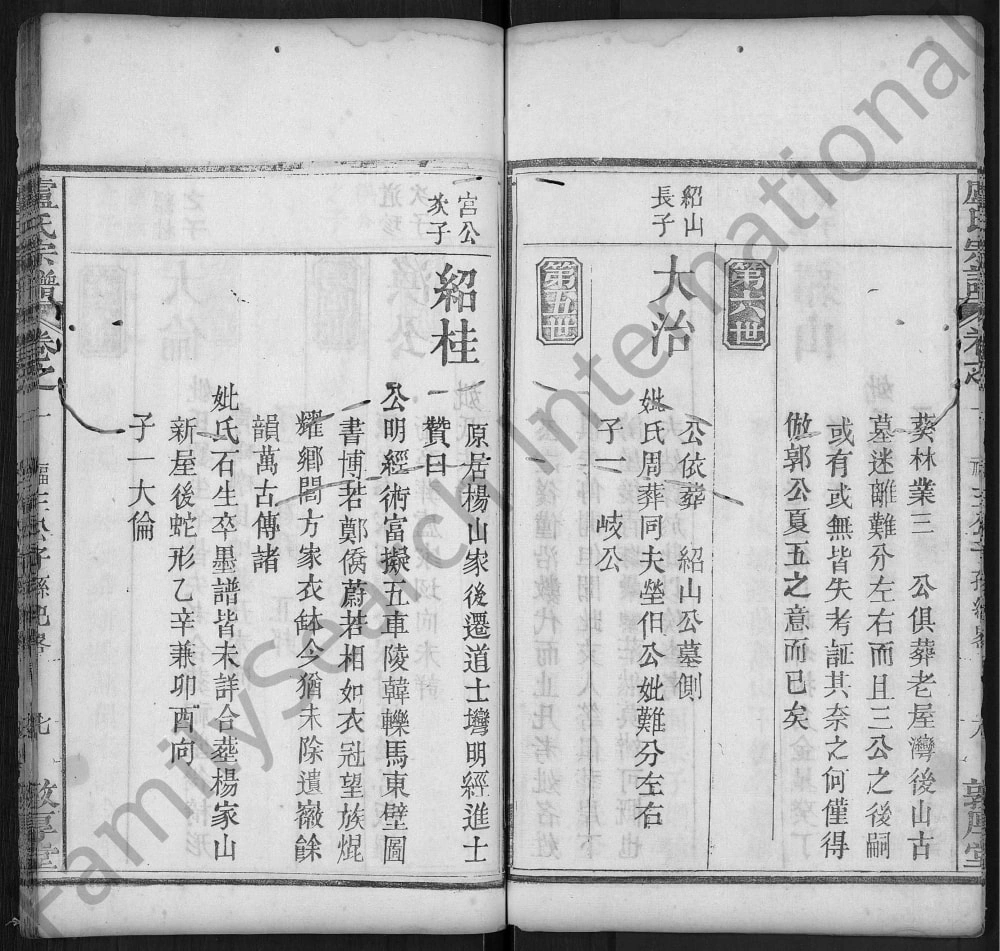 葵林業三　公俱葬老屋灣後山古
墓迷離難分左右而且三公之後嗣
或有或無皆失考証其奈之何僅得
倣郭公夏五之意而已矣
第六世
紹山
長子
大治
公依葬　紹山公墓側
妣氏周葬同夫塋但公妣難分左右
子一　岐公
第五世
宮公
次子
紹桂
原居楊山家後遷道士塆明經進士
贊曰
公明經術富擬五車陵韓轢馬東壁圖
書博若鄭僑蔚若相如衣冠望族焜
耀鄉閭方家衣鉢今猶未除遺徽餘
韻萬古傳諸
妣氏石生卒墨譜皆未詳合葬楊家山
新屋後蛇形乙辛兼卯酉向
子一大倫
盧氏宗譜
卷之一
敦厚堂
FamilySearch International